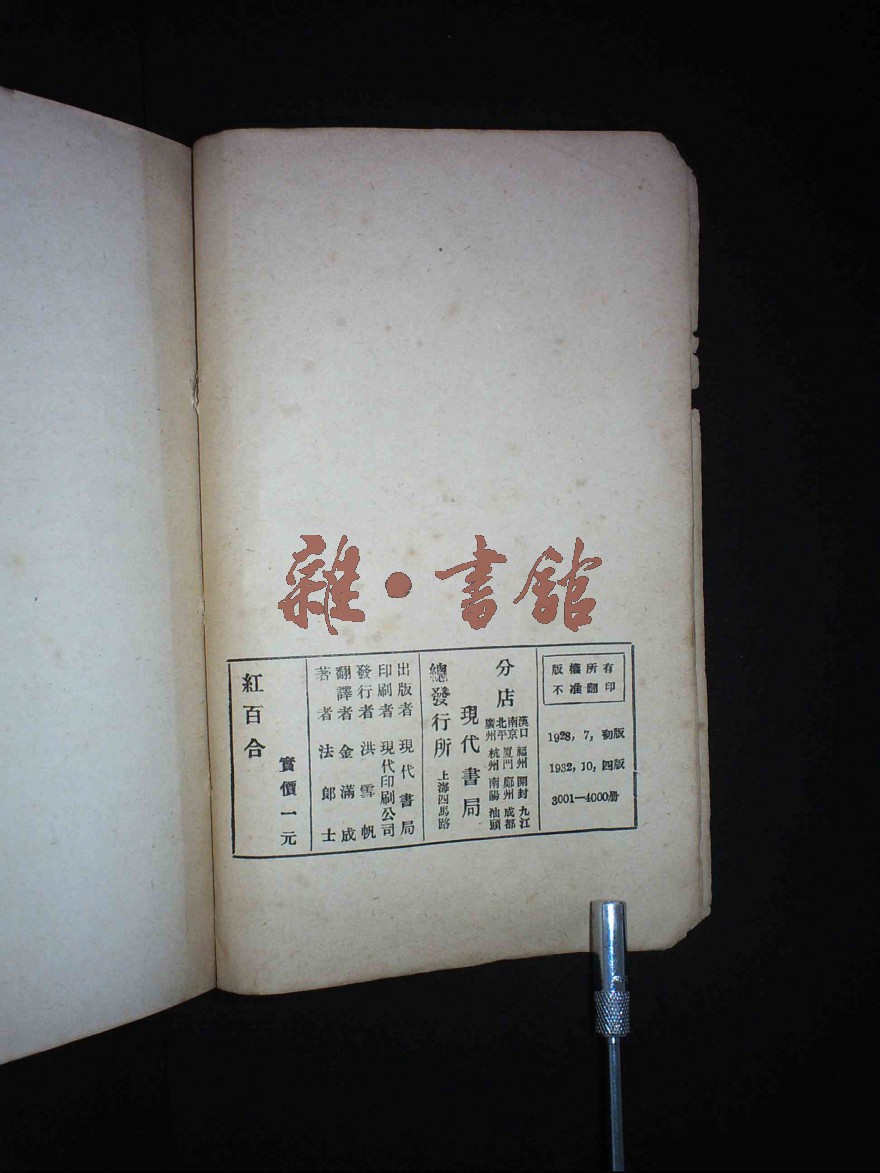 雜·書館
版權所有
不准翻印
1928, 7, 初版
1932, 10, 四版
3001—4000册
分店
漢口 福州 開封 九江
南京 廈門 鄭州 成都
北平
廣州 杭州 南陽 汕頭
現代書局
總發行所 上海四馬路
出版者 現代書局
印刷者 現代印刷公司
發行者 洪雪帆
翻譯者 金滿成
著者 法郎士
實價一元
紅百合